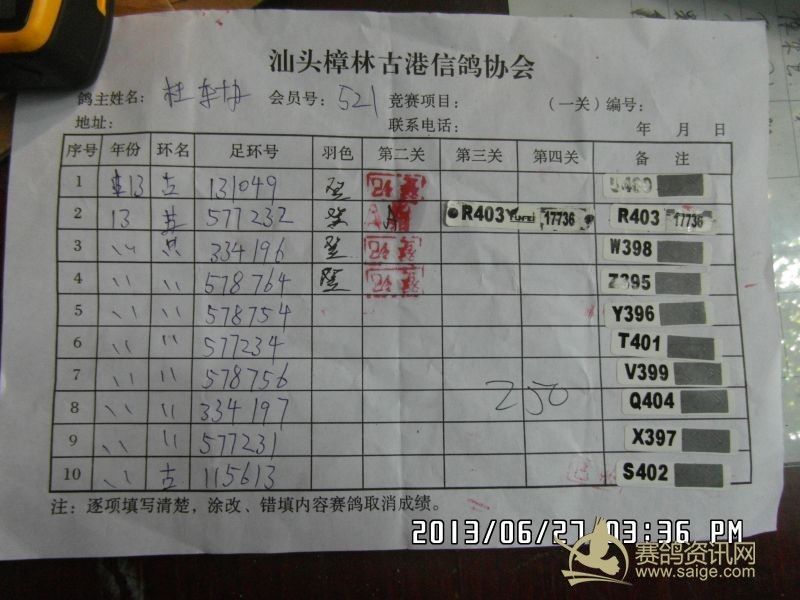 汕头樟林古港信鸽协会
鸽主姓名： 会员号：521 竞赛项目： （一关）编号：
地址： 联系电话： 年 月 日
序号 年份 环名 足环号 羽色 第二关 第三关 第四关 备 注
1 13 古 131049
2 13 577232 R403Y 17736 R403 17736
3 〃 334196 W398
4 〃 〃 578764 Z395
5 〃 〃 578754 Y396
6 〃 〃 577234 T401
7 〃 〃 578756 V399
8 〃 〃 334197 250 Q404
9 〃 〃 577231 X397
10 〃 古 115613 S402
注：逐项填写清楚，涂改、错填内容赛鸽取消成绩。
2013/06/27 03:36 PM
赛鸽资讯网
www.saige.com